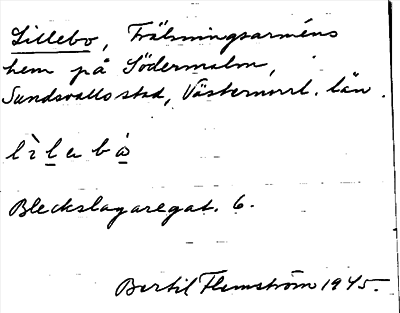 Lillebo, Frälsningsarméns
hem på Södermalm,
Sundsvalls stad, Västernorrl. län.
lìlebò
Bleckslagaregat. 6.
Bertil Flemström 1945.